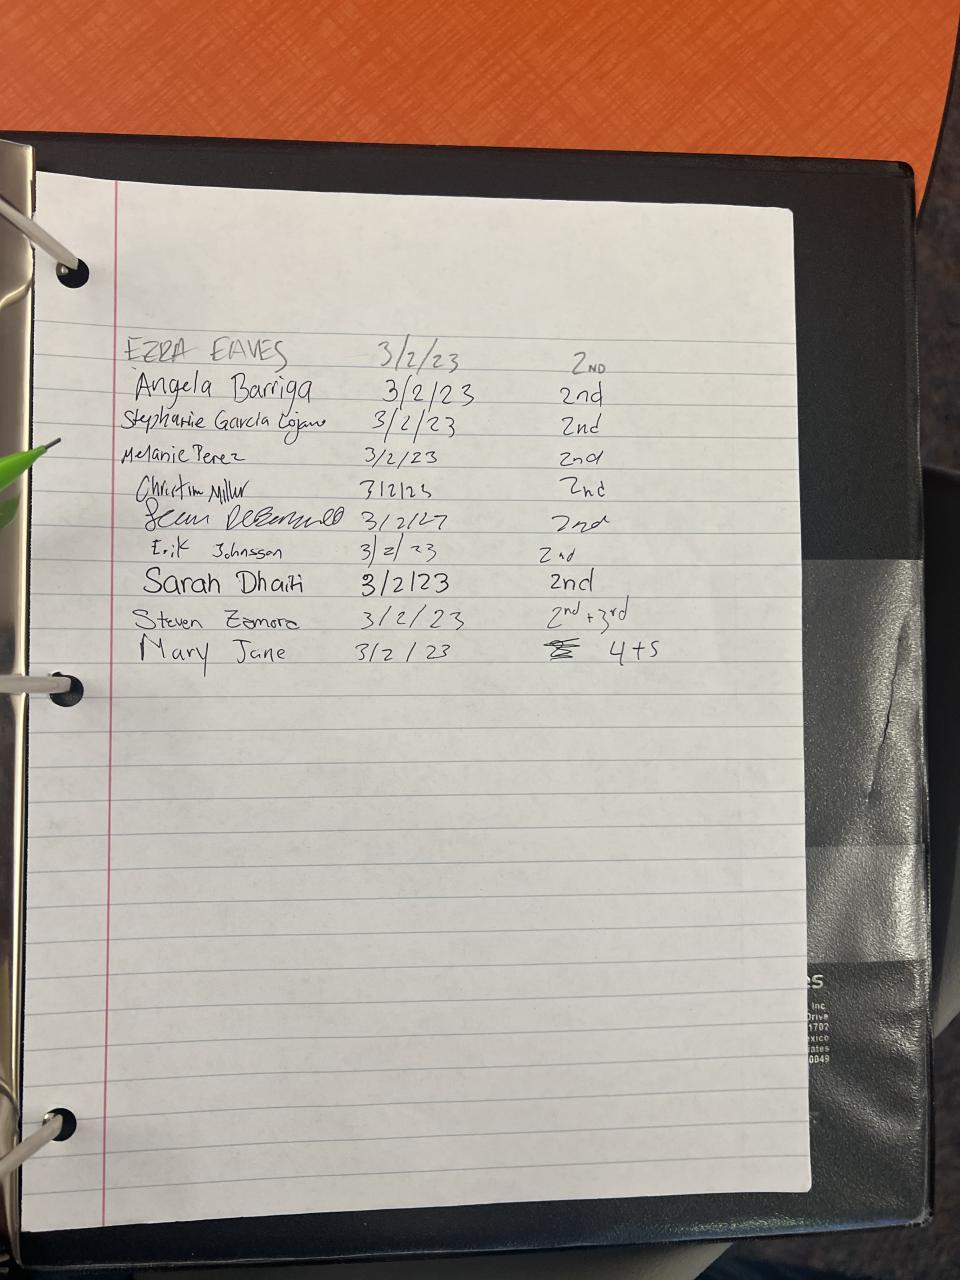 EZRA EAVES 3/2/23 2ND
Angela Barriga 3/2/23 2nd
Stephanie Garcia Lojano 3/2/23 2nd
Melanie Perez 3/2/23 2nd
Miller 3/2/23 2nd
Sean 3/2/27 2nd
Erik Johnsson 3/2/23 2nd
Sarah Dhaiti 3/2/23 2nd
Steven Zamora 3/2/23 2nd + 3rd
Mary Jane 3/2/23 4+5
es
Inc
Drive
1702
exico
iates
0049